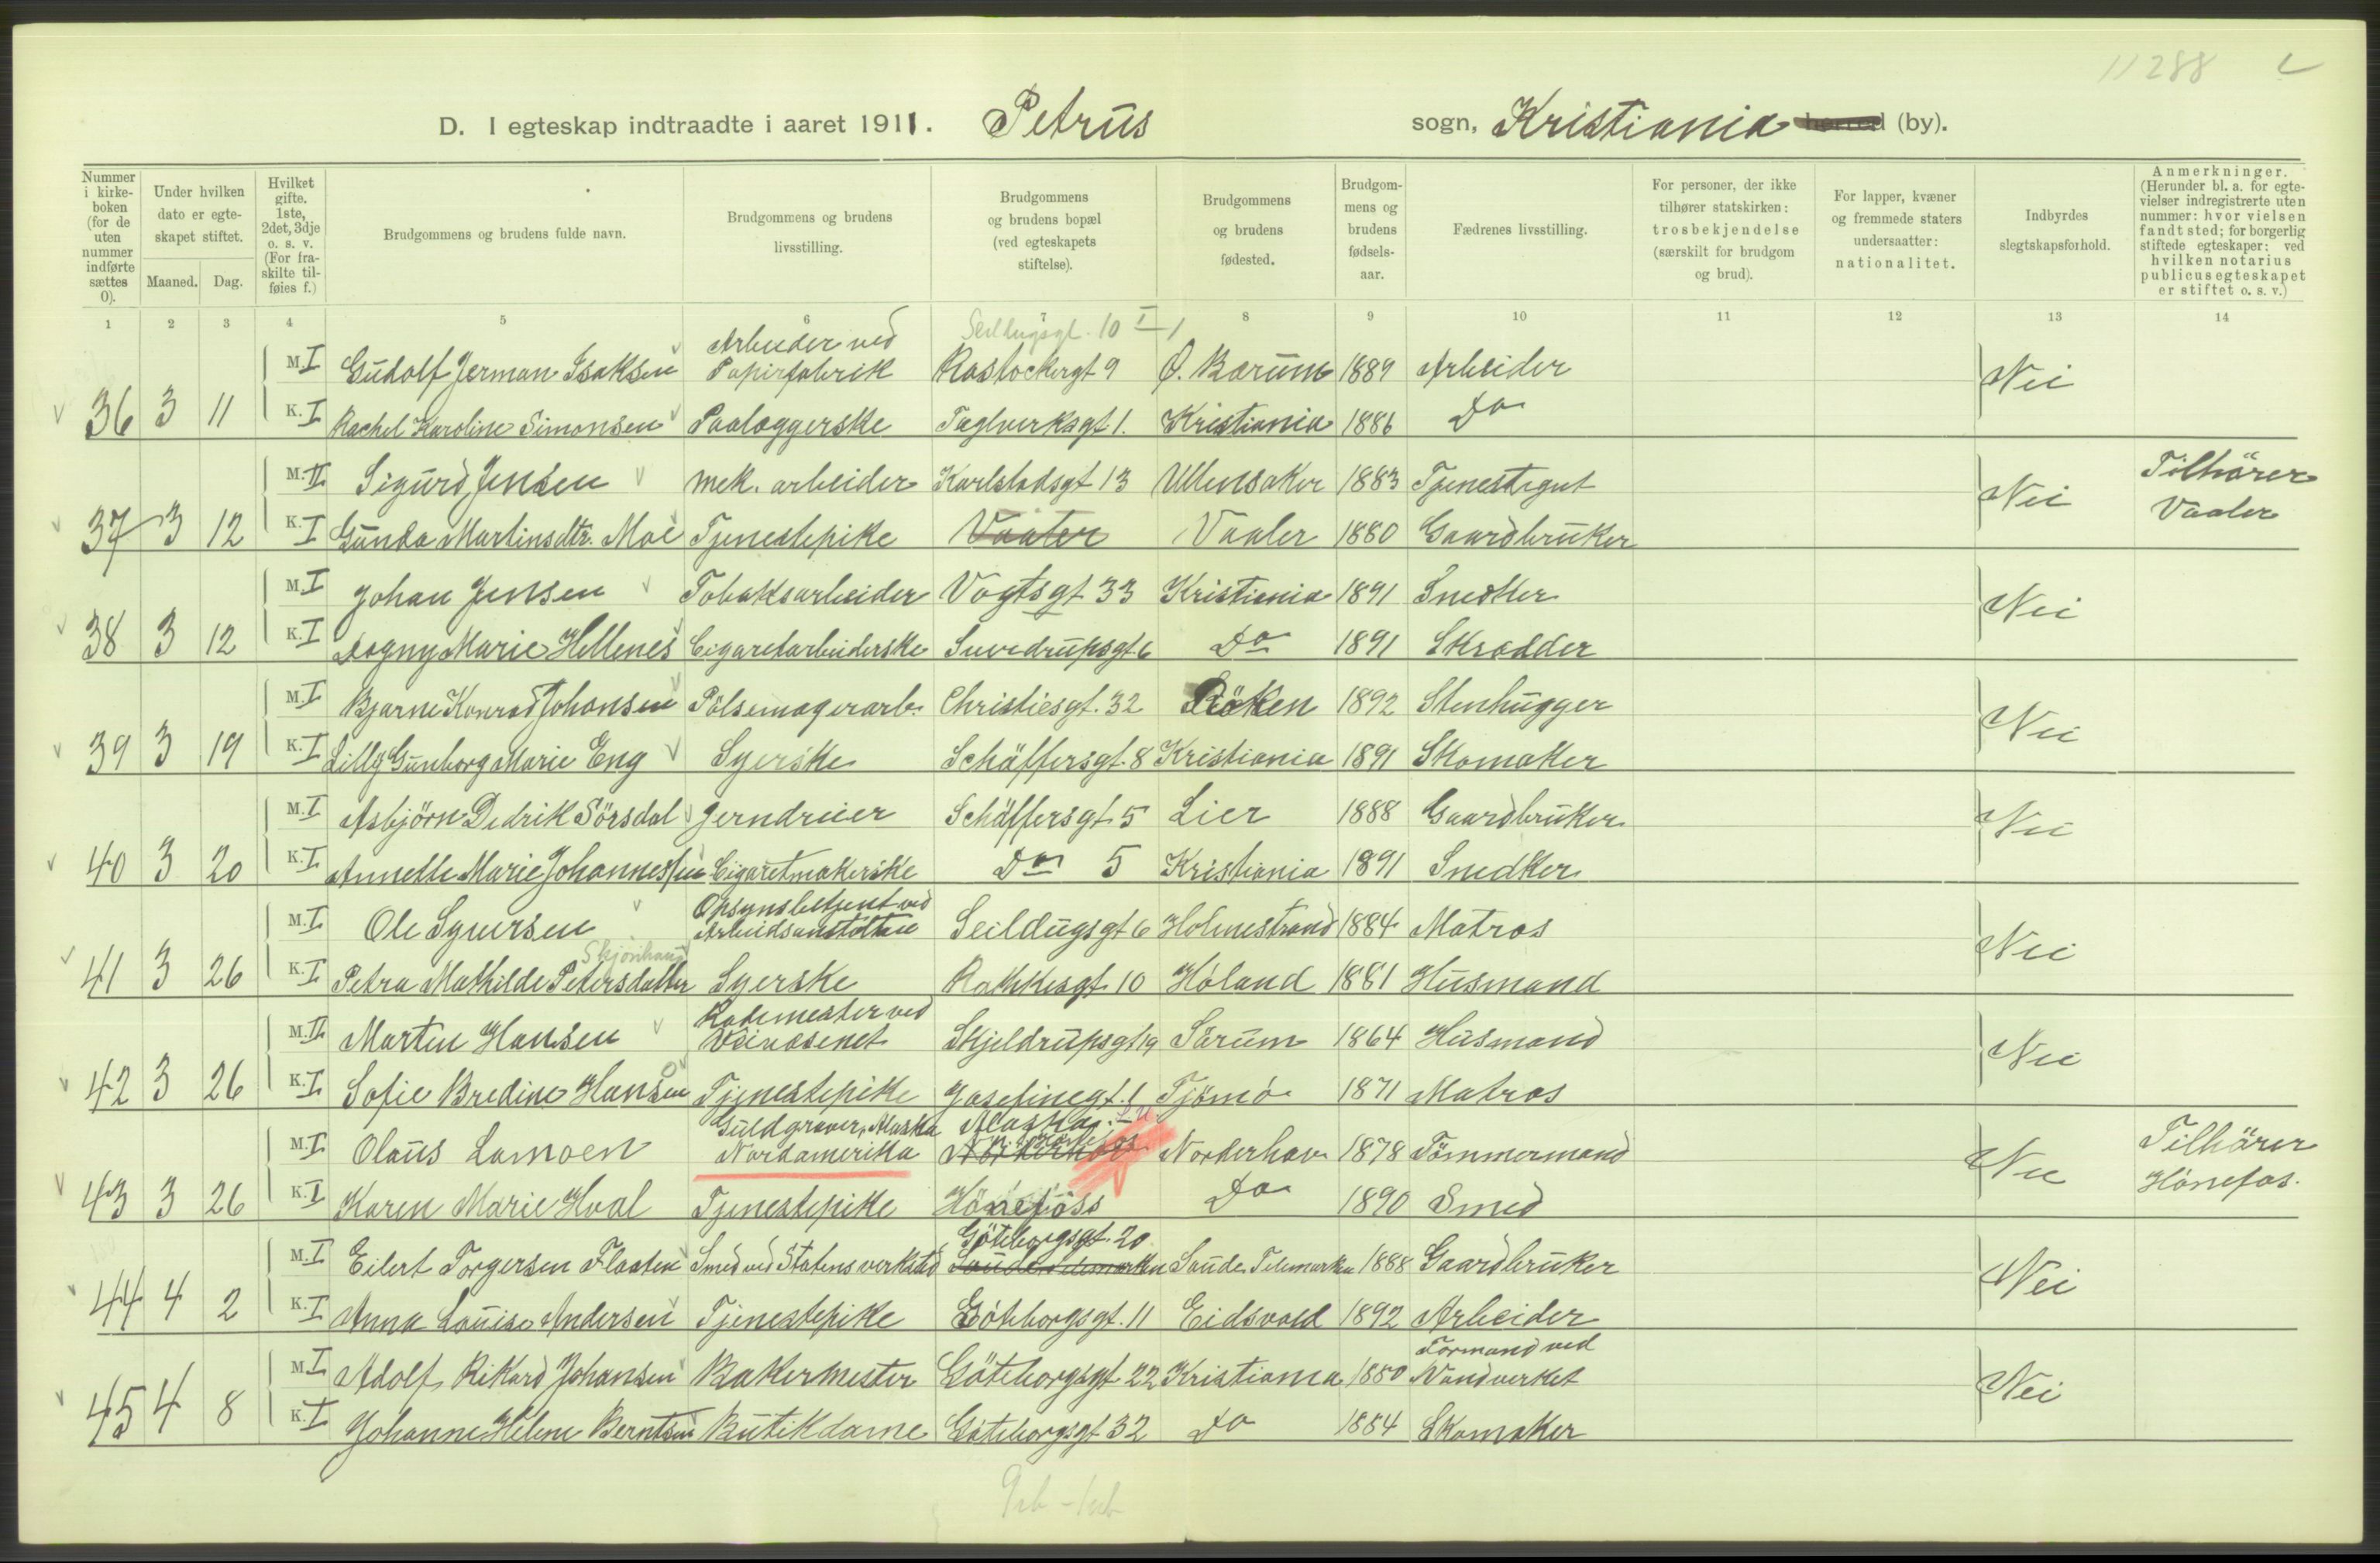 11 288
D. I egteskap indtraadte i aaret 1911. Petrus sogn, Kristiania herred (by).
Nummer i kirkeboken (for de uten nummer indførte sættes 0).
Under hvilken dato er egteskapet stiftet.
Maaned. Dag.
Hvilket gifte. 1ste, 2det, 3dje o. s. v. (For fraskilte tilføies f.)
Brudgommens og brudens fulde navn.
Brudgommens og brudens livsstilling.
Brudgommens og brudens bopæl (ved egteskapets stiftelse).
Brudgommens og brudens fødested.
Brudgommens og brudens fødselsaar.
Fædrenes livsstilling.
For personer, der ikke tilhører statskirken: trosbekjendelse (særskilt for brudgom og brud).
For lapper, kvæner og fremmede staters undersaatter: nationalitet.
Indbyrdes slegtskapsforhold.
Anmerkninger. (Herunder bl. a. for egtevielser indregistrerte uten nummer: hvor vielsen fandt sted; for borgerlig stiftede egteskaper: ved hvilken notarius publicus egteskapet er stiftet o. s. v.)
1 2 3 4 5 6 7 8 9 10 11 12 13 14
Seildugsgt. 10 I
M. I Gudolf Jerman Isaksen Arbeider ved Papirfabrik Rostockergt 9 Ø. Bærum 1889 Arbeider Nei
36 3 11 K. I Rachel Karoline Simonsen Paalæggerske Taglverksgt 1. Kristiania 1886 Do
M. II Sigurd Jensen mek. arbeider Karlstadsgt 13 Ullensaker 1883 Tjenestegut Nei Tilhörer Vaaler
37 3 12 K. I Gunda Martinsdtr. Moe Tjenestepike Vaaler Vaaler 1880 Gaardbruker
M. I Johan Jensen Tobaksarbeider Vogtsgt 33 Kristiania 1891 Snedker Nei
38 3 12 K. I Dagny Marie Hellenes Cigaretarbeiderske Suvedrupsgt 6 Do 1891 Skrædder
M. I Bjarne Konrad Johansen Pölsemagerarb. Christiesgt. 32 Röken 1892 Stenhugger Nei
39 3 19 K. I Lilly Gunborg Marie Eng Syerske Schäffersgt. 8 Kristiania 1891 Skomaker
M. I Asbjörn Dedrik Sörsdal Jerndreier Schäffersgt 5 Lier 1888 Gaardbruker Nei
40 3 20 K. I Annette Marie Johannessen Cigaretmakerske Do 5 Kristiania 1891 Snedker
M. I Ole Syversen Opsynsbetjent ved Arbeidsanstalten Seildugsgt 6 Holmestrand 1884 Matros Nei
41 3 26 K. I Petra Mathilde Petersdatter Skjönhaug Syerske Rathkesgt 10 Höland 1881 Husmand
M. II Martin Hansen Rodemester ved Veivæsenet Skjeldrupsgt 19 Sörum 1864 Husmand Nei
42 3 26 K. I Sofie Bredine Hansen Tjenestepike Josefinegt. 1 Tjömö 1871 Matros
M. I Olaus Lamoen Guldgraver, Alaska Nordamerika Alaska Norderhov Norderhov 1878 Tömmermand Nei Tilhörer Hönefos.
43 3 26 K. I Karen Marie Hval Tjenestepike Hönefoss Do 1890 Smed
M. I Eilert Torgersen Flaaten Smed ved Statens verksted Göteborgsgt. 20 Saude Telemarken Saude Telemarken 1888 Gaardbruker Nei
44 4 2 K. I Anna Louise Andersen Tjenestepike Göteborgsgt. 11 Eidsvold 1892 Arbeider
M. I Adolf Rikard Johansen Bakermester Göteborgsgt 22 Kristiania 1880 Formand ved Vandverket Nei
45 4 8 K. I Johanne Helene Berntsen Butikdame Göteborgsgt 32 Do 1884 Skomaker